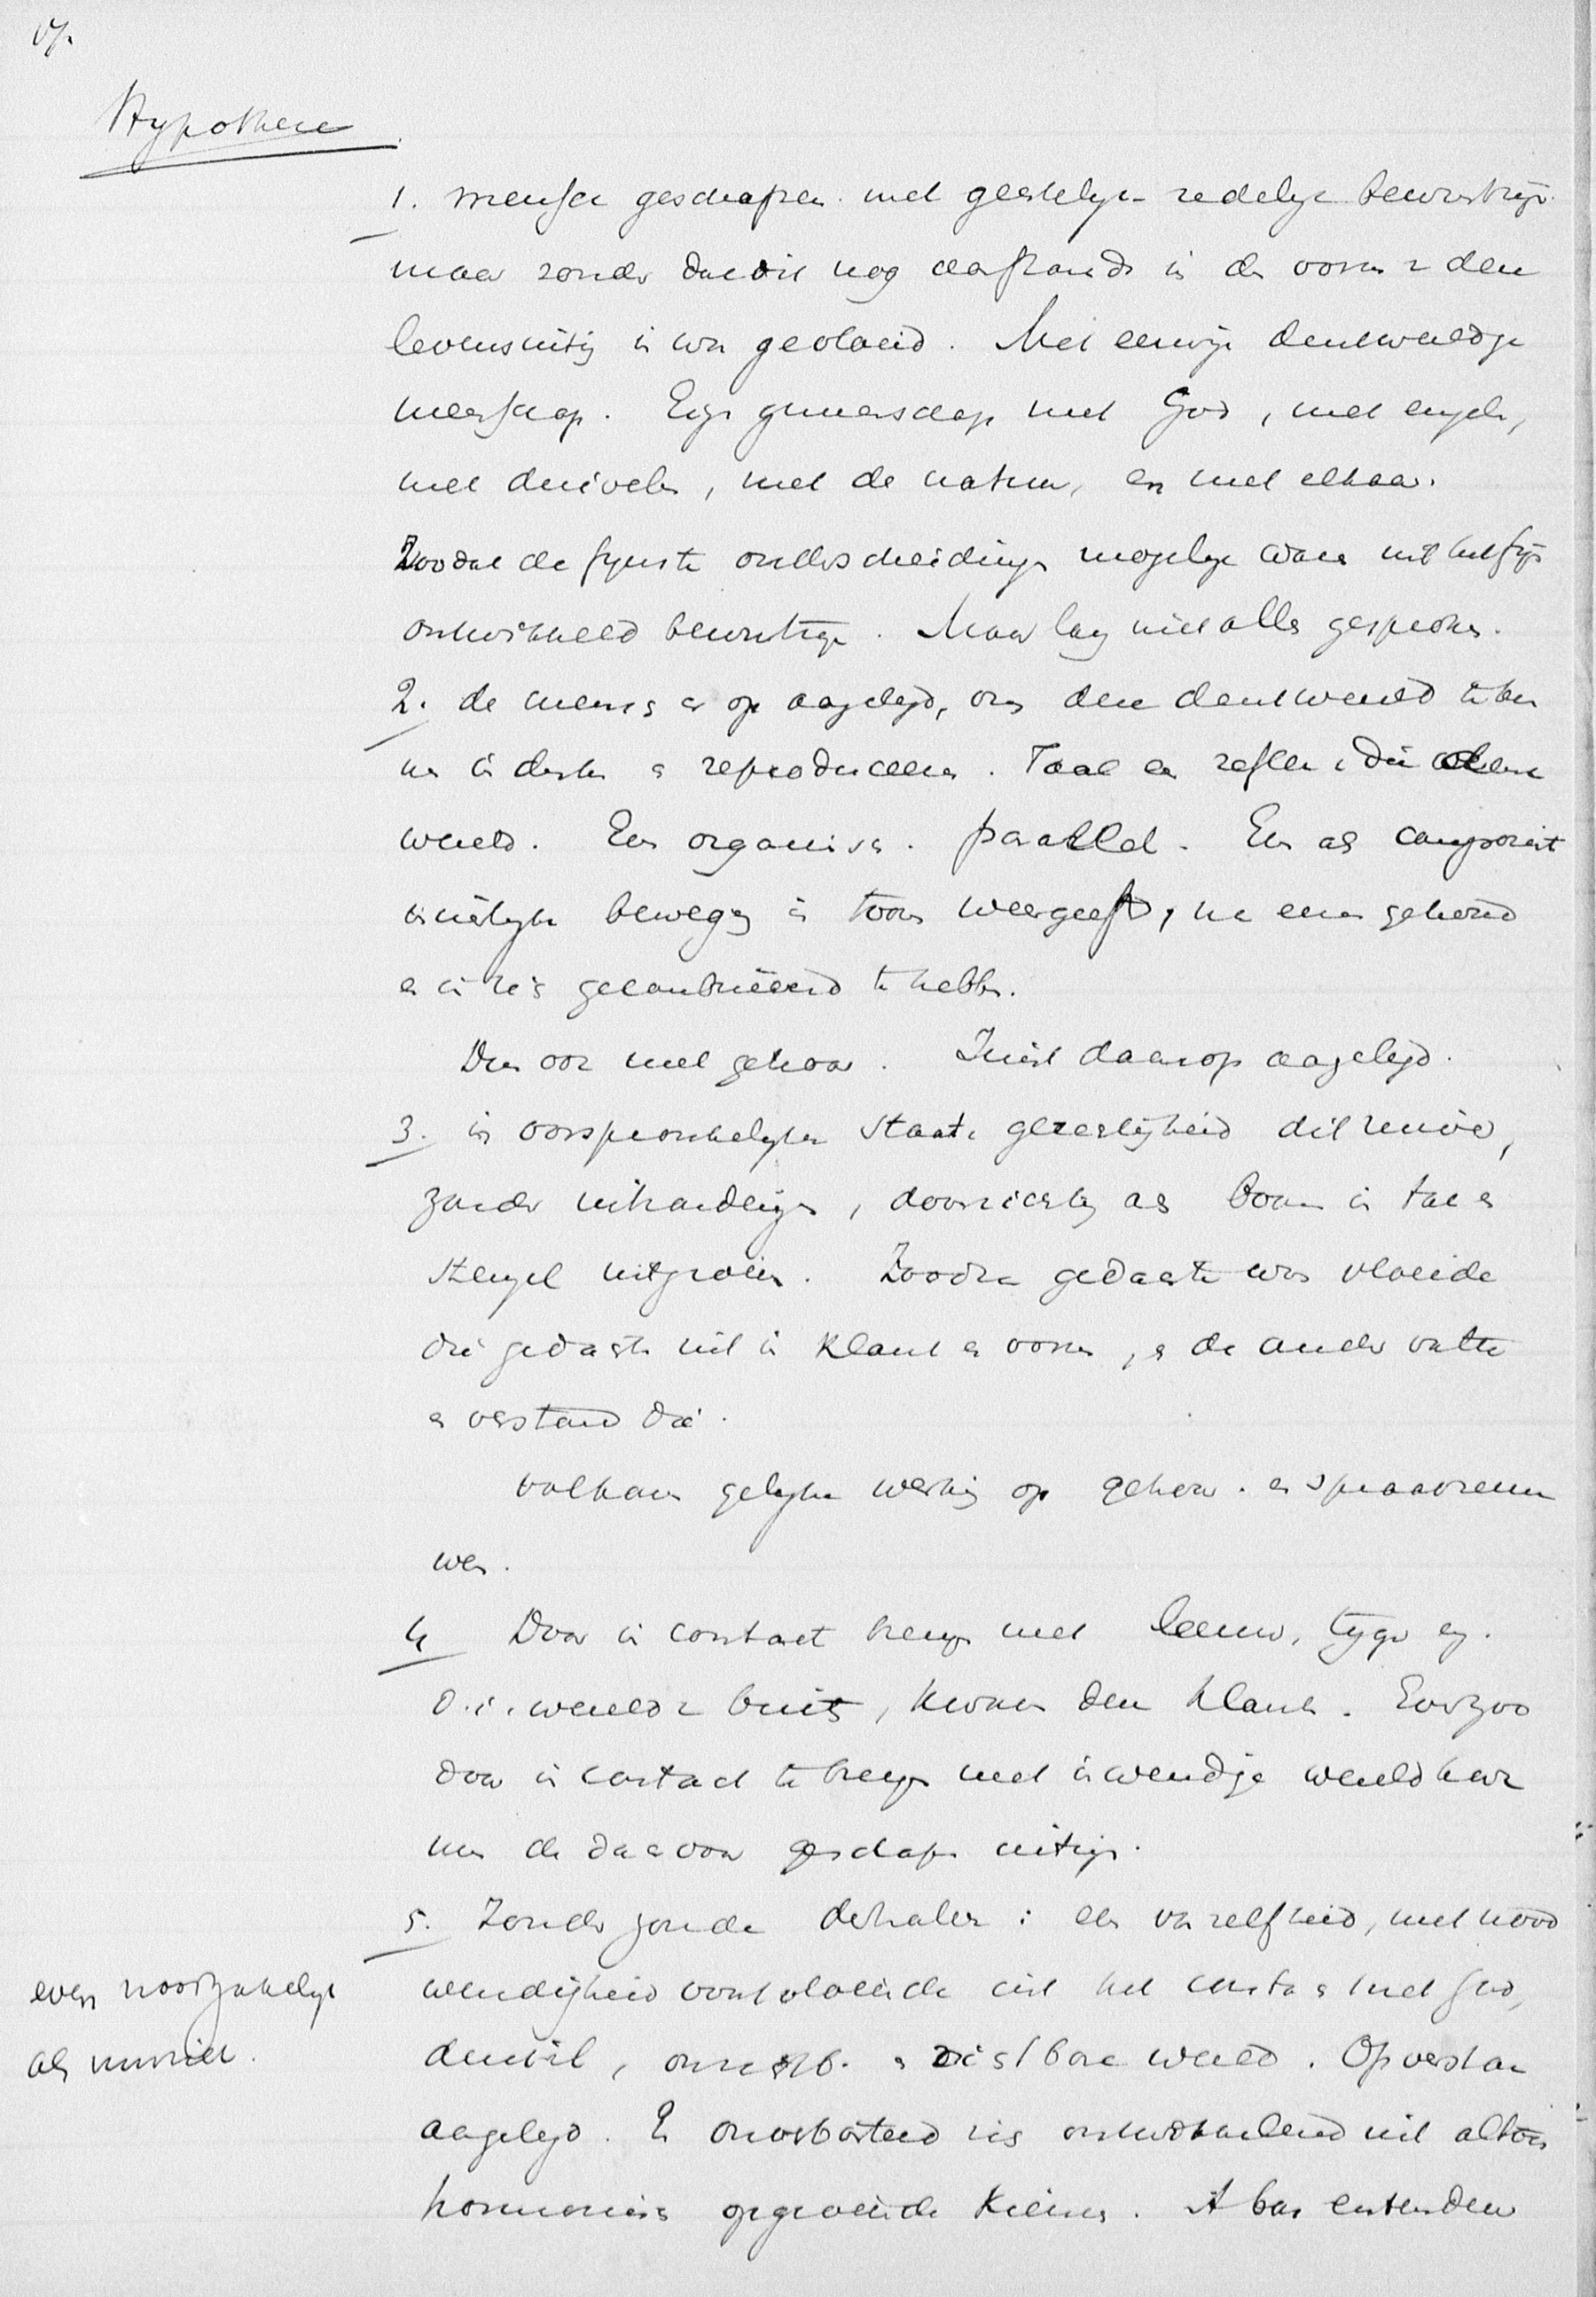 Hypothese
1. menschen geschapen met geestelijk redelijk bewustzijn
maar zonder dat dit nog aanstonds in de vorm v den
levensuiting in was gevloeid. Met eenige denkwereldge
meenschap. Eige gemeenschap met God, met engelen,
met duivelen, met de natuur, en met elkaar.
Zoodat de fijnste onderscheidingen mogelijk waren uit het fijn
ontwikkeld bewustzijn. Maar lang niet alles gesproken.
2. de mensch er op aangelegd, om deze denkwereld te ken
nen in denken en reproduceeren. Taal een reflex v die
wereld. Een organisch parallel. Een als componist
innerlijke beweging in toon weergeeft, na eerst gehoord
en in zich te hebben.
Dus oor met gehoor. Juist daarop aangelegd.
3. in oorspronkelijken staat v gerechtigheid dit zuiver,
zonder , doorzichtig als boom in tak en
stengel uitgroeien. Zoodra gedachte was vloeide
die gedachte uit in klank en vorm, en de ander vatte
en verstond die.
volkomen gelijke werking op gehoor en spraakzenu
wen.
4 Door in contact brengen met leeuw, tijger en.
d.i. wereld v buiten, kwam den klank. Evenzoo
door in contact te brengen met inwendige wereld kwa
men de daarvoor geschapen uitingen.
5. Zonder zonde : een vanzelfheid, met nood
wendigheid voortvloeiende uit het contact met God,
duivel, onzichtb. en zichtbare wereld. Op verstaan
aangelegd. En onverbasterd zich ontwikkelend uit
harmonisch opgroeiende kiemen.
even noodzakelijk
als muziek.